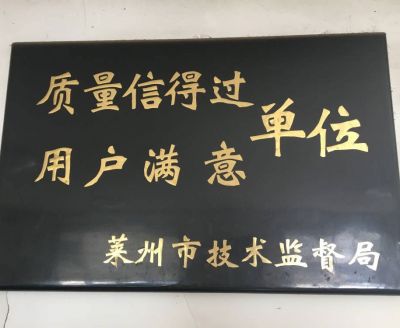 质量信得过
用户满意
单位
莱州市技术监督局